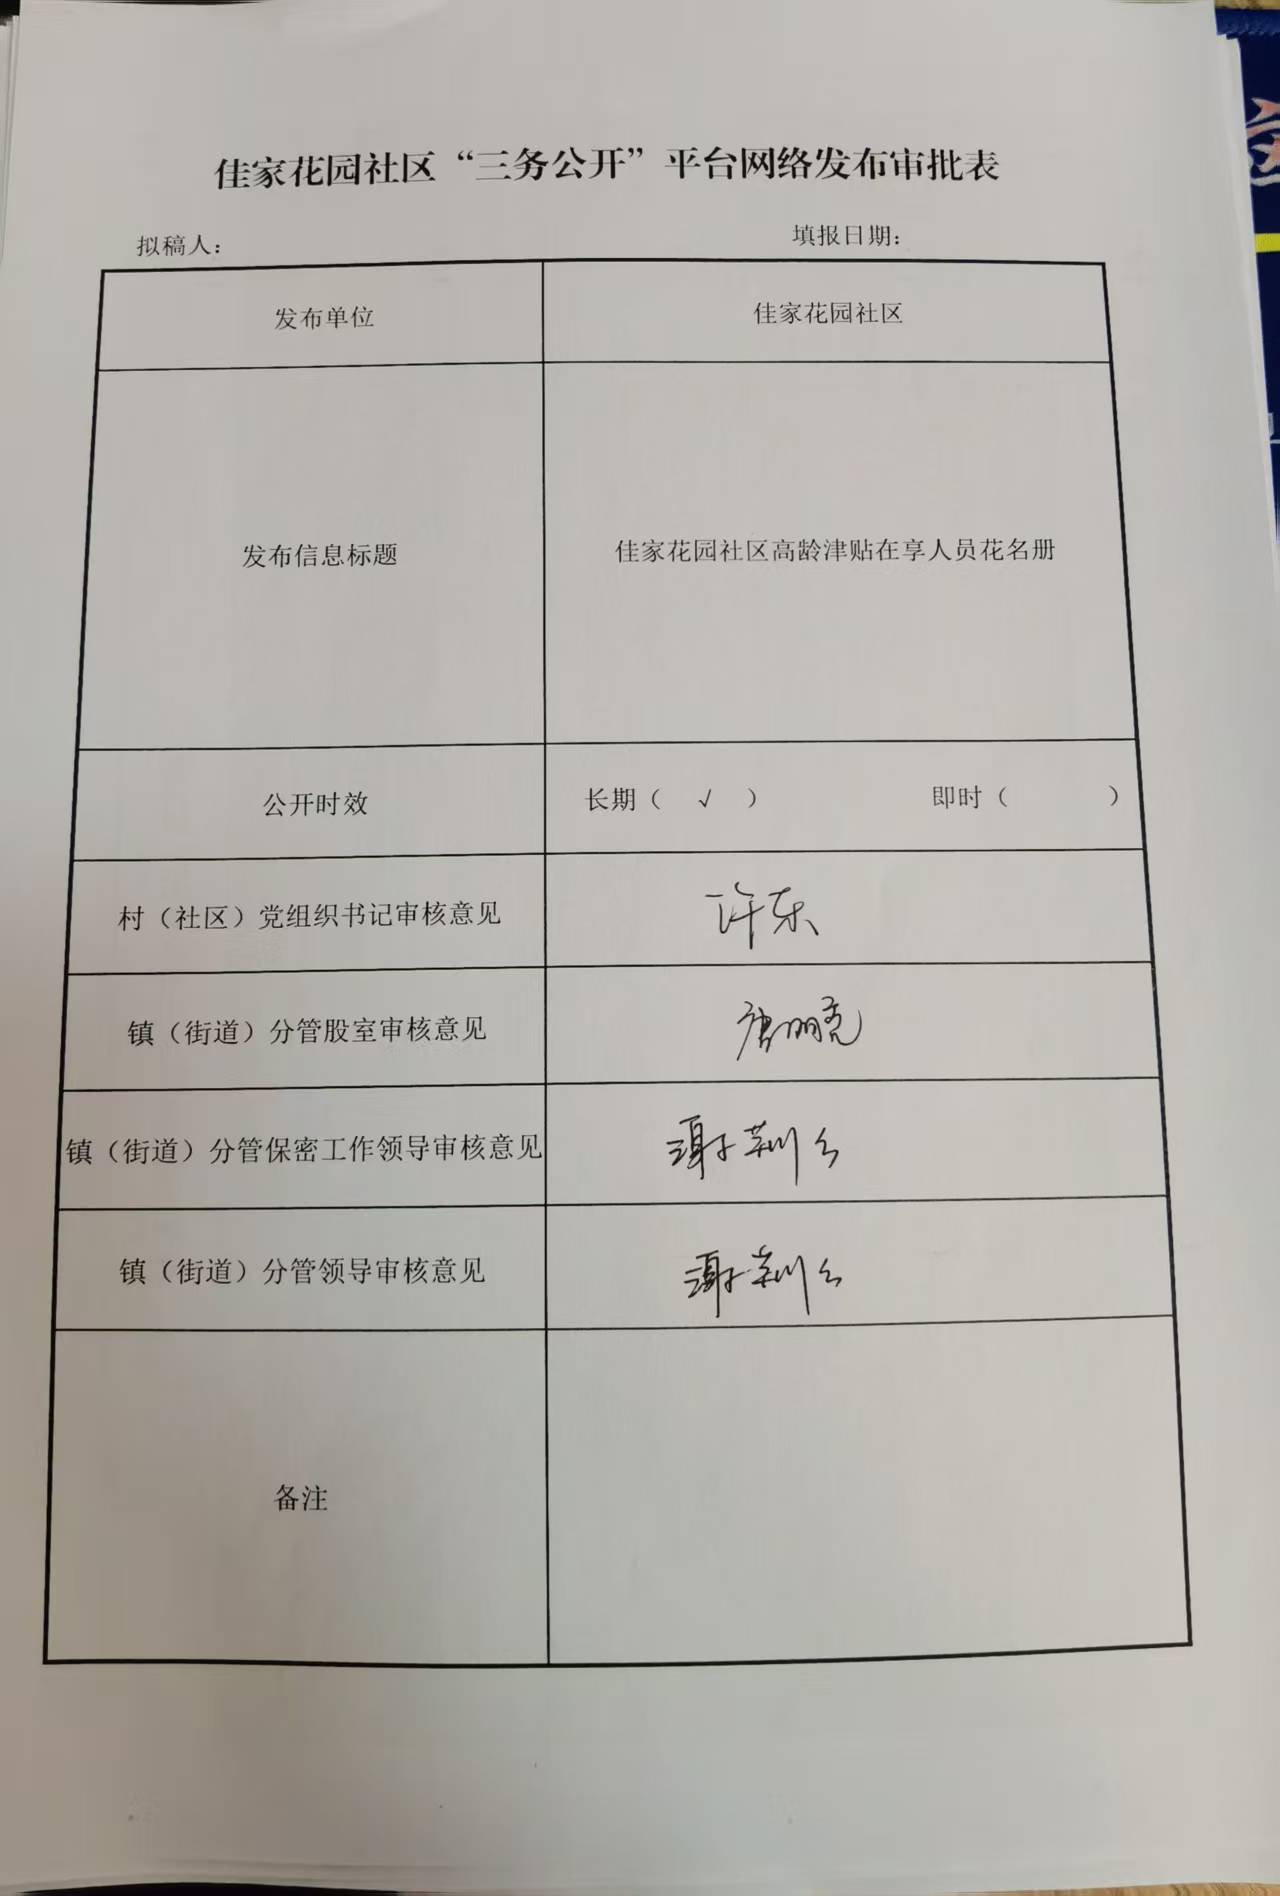 佳家花园社区“三务公开”平台网络发布审批表
拟稿人： 填报日期：
发布单位 佳家花园社区
发布信息标题 佳家花园社区高龄津贴在享人员花名册
公开时效 长期（ √ ） 即时（ ）
村（社区）党组织书记审核意见 许东
镇（街道）分管股室审核意见 唐明亮
镇（街道）分管保密工作领导审核意见 谢荆
镇（街道）分管领导审核意见 谢荆
备注